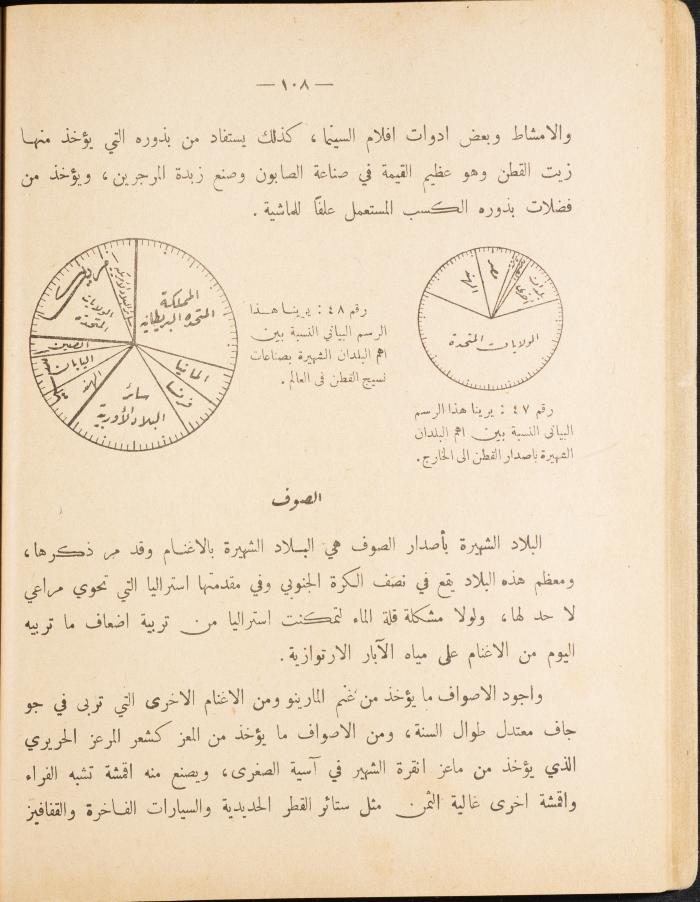 — ١٠٨ —
والامشاط وبعض ادوات افلام السينما، كذلك يستفاد من بذوره التي يؤخذ منها
زيت القطن وهو عظيم القيمة في صناعة الصابون وصنع زبدة المرجرين، ويؤخذ من
فضلات بذوره الكسب المستعمل علفاً للماشية.
بلدان
اخرى
مصر
الهند
الولايات المتحدة
رقم ٤٧ : يرينا هذا الرسم
البياني النسبة بين اهم البلدان
الشهيرة باصدار القطن الى الخارج.
المملكة
المتحده البريطانيه
المانيا
فرنسا
سائر
البلاد الأوربية
الهند
اليابان
الصين
الولايات
المتحده
رقم ٤٨ : يرينا هذا
الرسم البياني النسبة بين
اهم البلدان الشهيرة بصناعات
نسيج القطن في العالم.
الصوف
البلاد الشهيرة بأصدار الصوف هي البلاد الشهيرة بالاغنام وقد مر ذكرها،
ومعظم هذه البلاد يقع في نصف الكرة الجنوبي وفي مقدمتها استراليا التي تحوي مراعي
لا حد لها، ولولا مشكلة قلة الماء لتمكنت استراليا من تربية اضعاف ما تربيه
اليوم من الاغنام على مياه الآبار الارتوازية.
واجود الاصواف ما يؤخذ من غنم المارينو ومن الاغنام الاخرى التي تربى في جو
جاف معتدل طوال السنة، ومن الاصواف ما يؤخذ من المعز كشعر المرعز الحريري
الذي يؤخذ من ماعز انقرة الشهير في آسية الصغرى، ويصنع منه اقمشة تشبه الفراء
واقمشة اخرى غالية الثمن مثل ستائر القطر الحديدية والسيارات الفاخرة والقفافيز